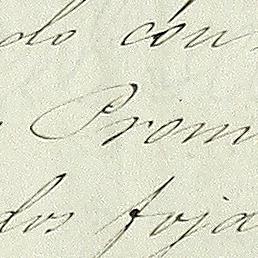 do con
Prom
dos foja